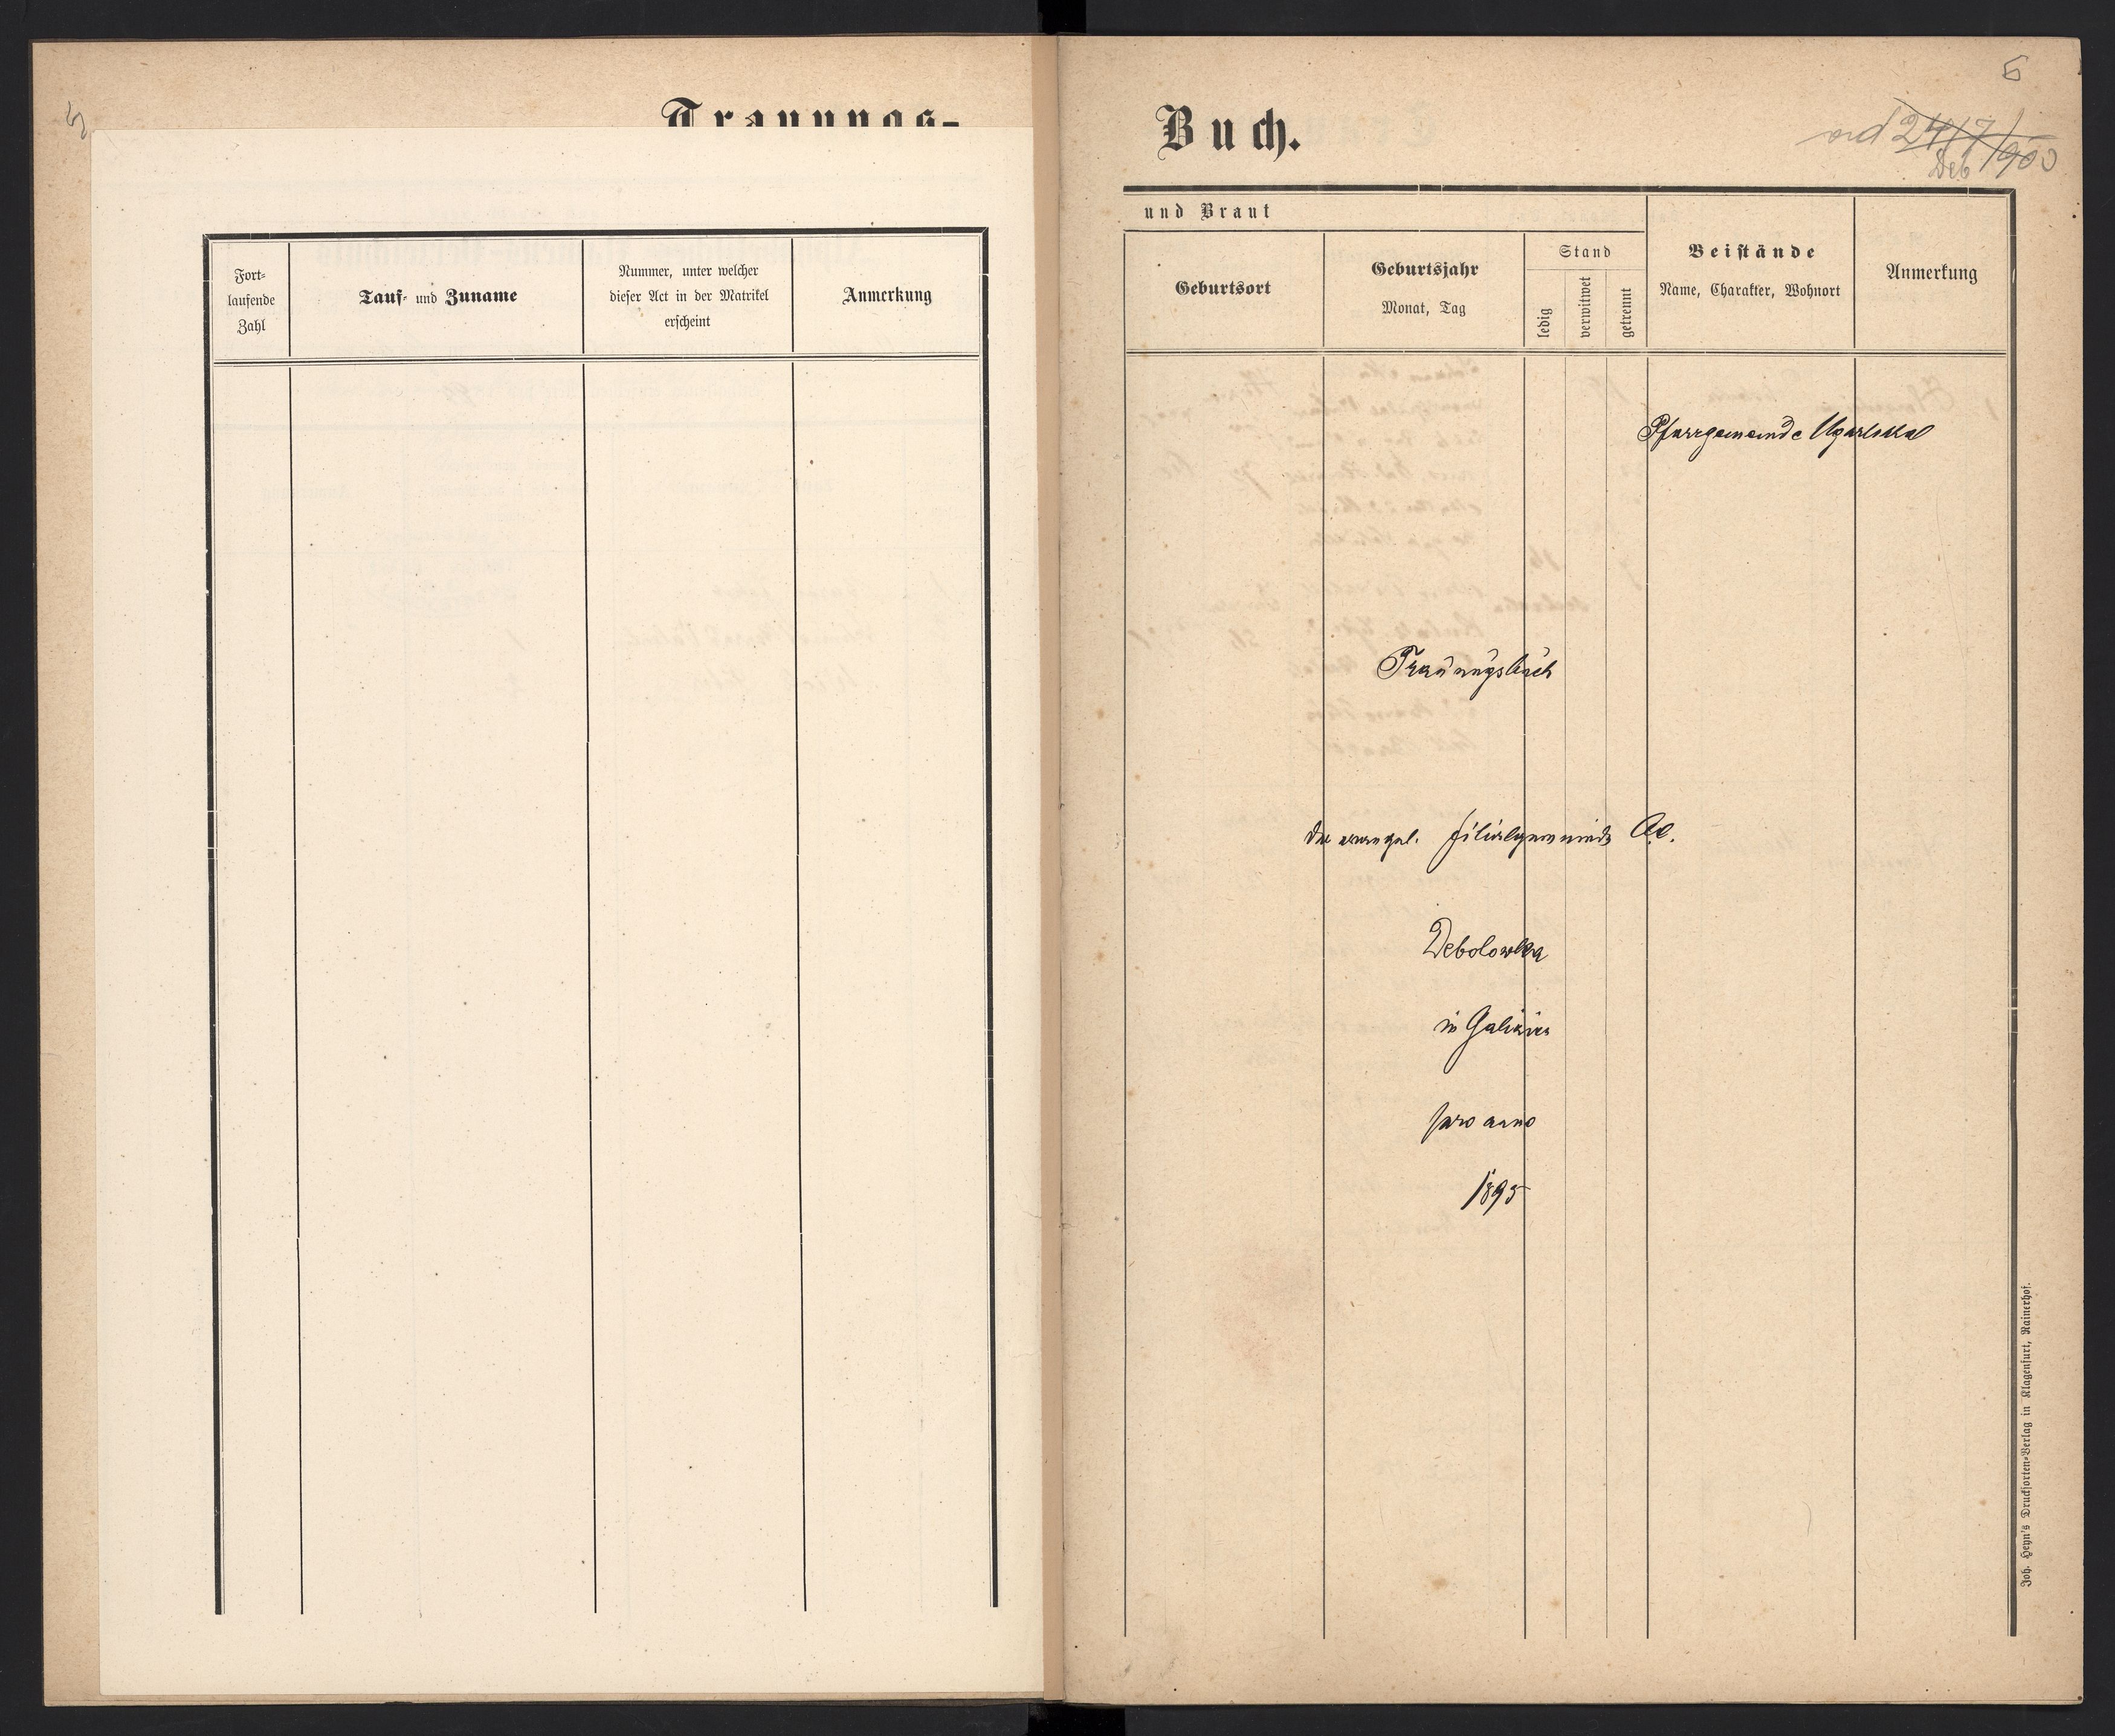 5
Trauungs-
Fort-
laufende
Zahl
Tauf- und Zuname
Nummer, unter welcher
dieser Act in der Matrikel
erscheint
Anmerkung
6
Buch.
24/7/900
Deb
und Braut
Geburtsort
Geburtsjahr
Monat, Tag
Stand
ledig
verwitwet
getrennt
Beistände
Name, Charakter, Wohnort
Anmerkung
Pfarrgemeinde Ugartsthal
Trauungsbuch
der evangel. Filialgemeinde A.C.
Debolowka
in Galizien
pro anno
1895
Joh. Heyn's Drucksorten-Verlag in Klagenfurt, Rainerhof.